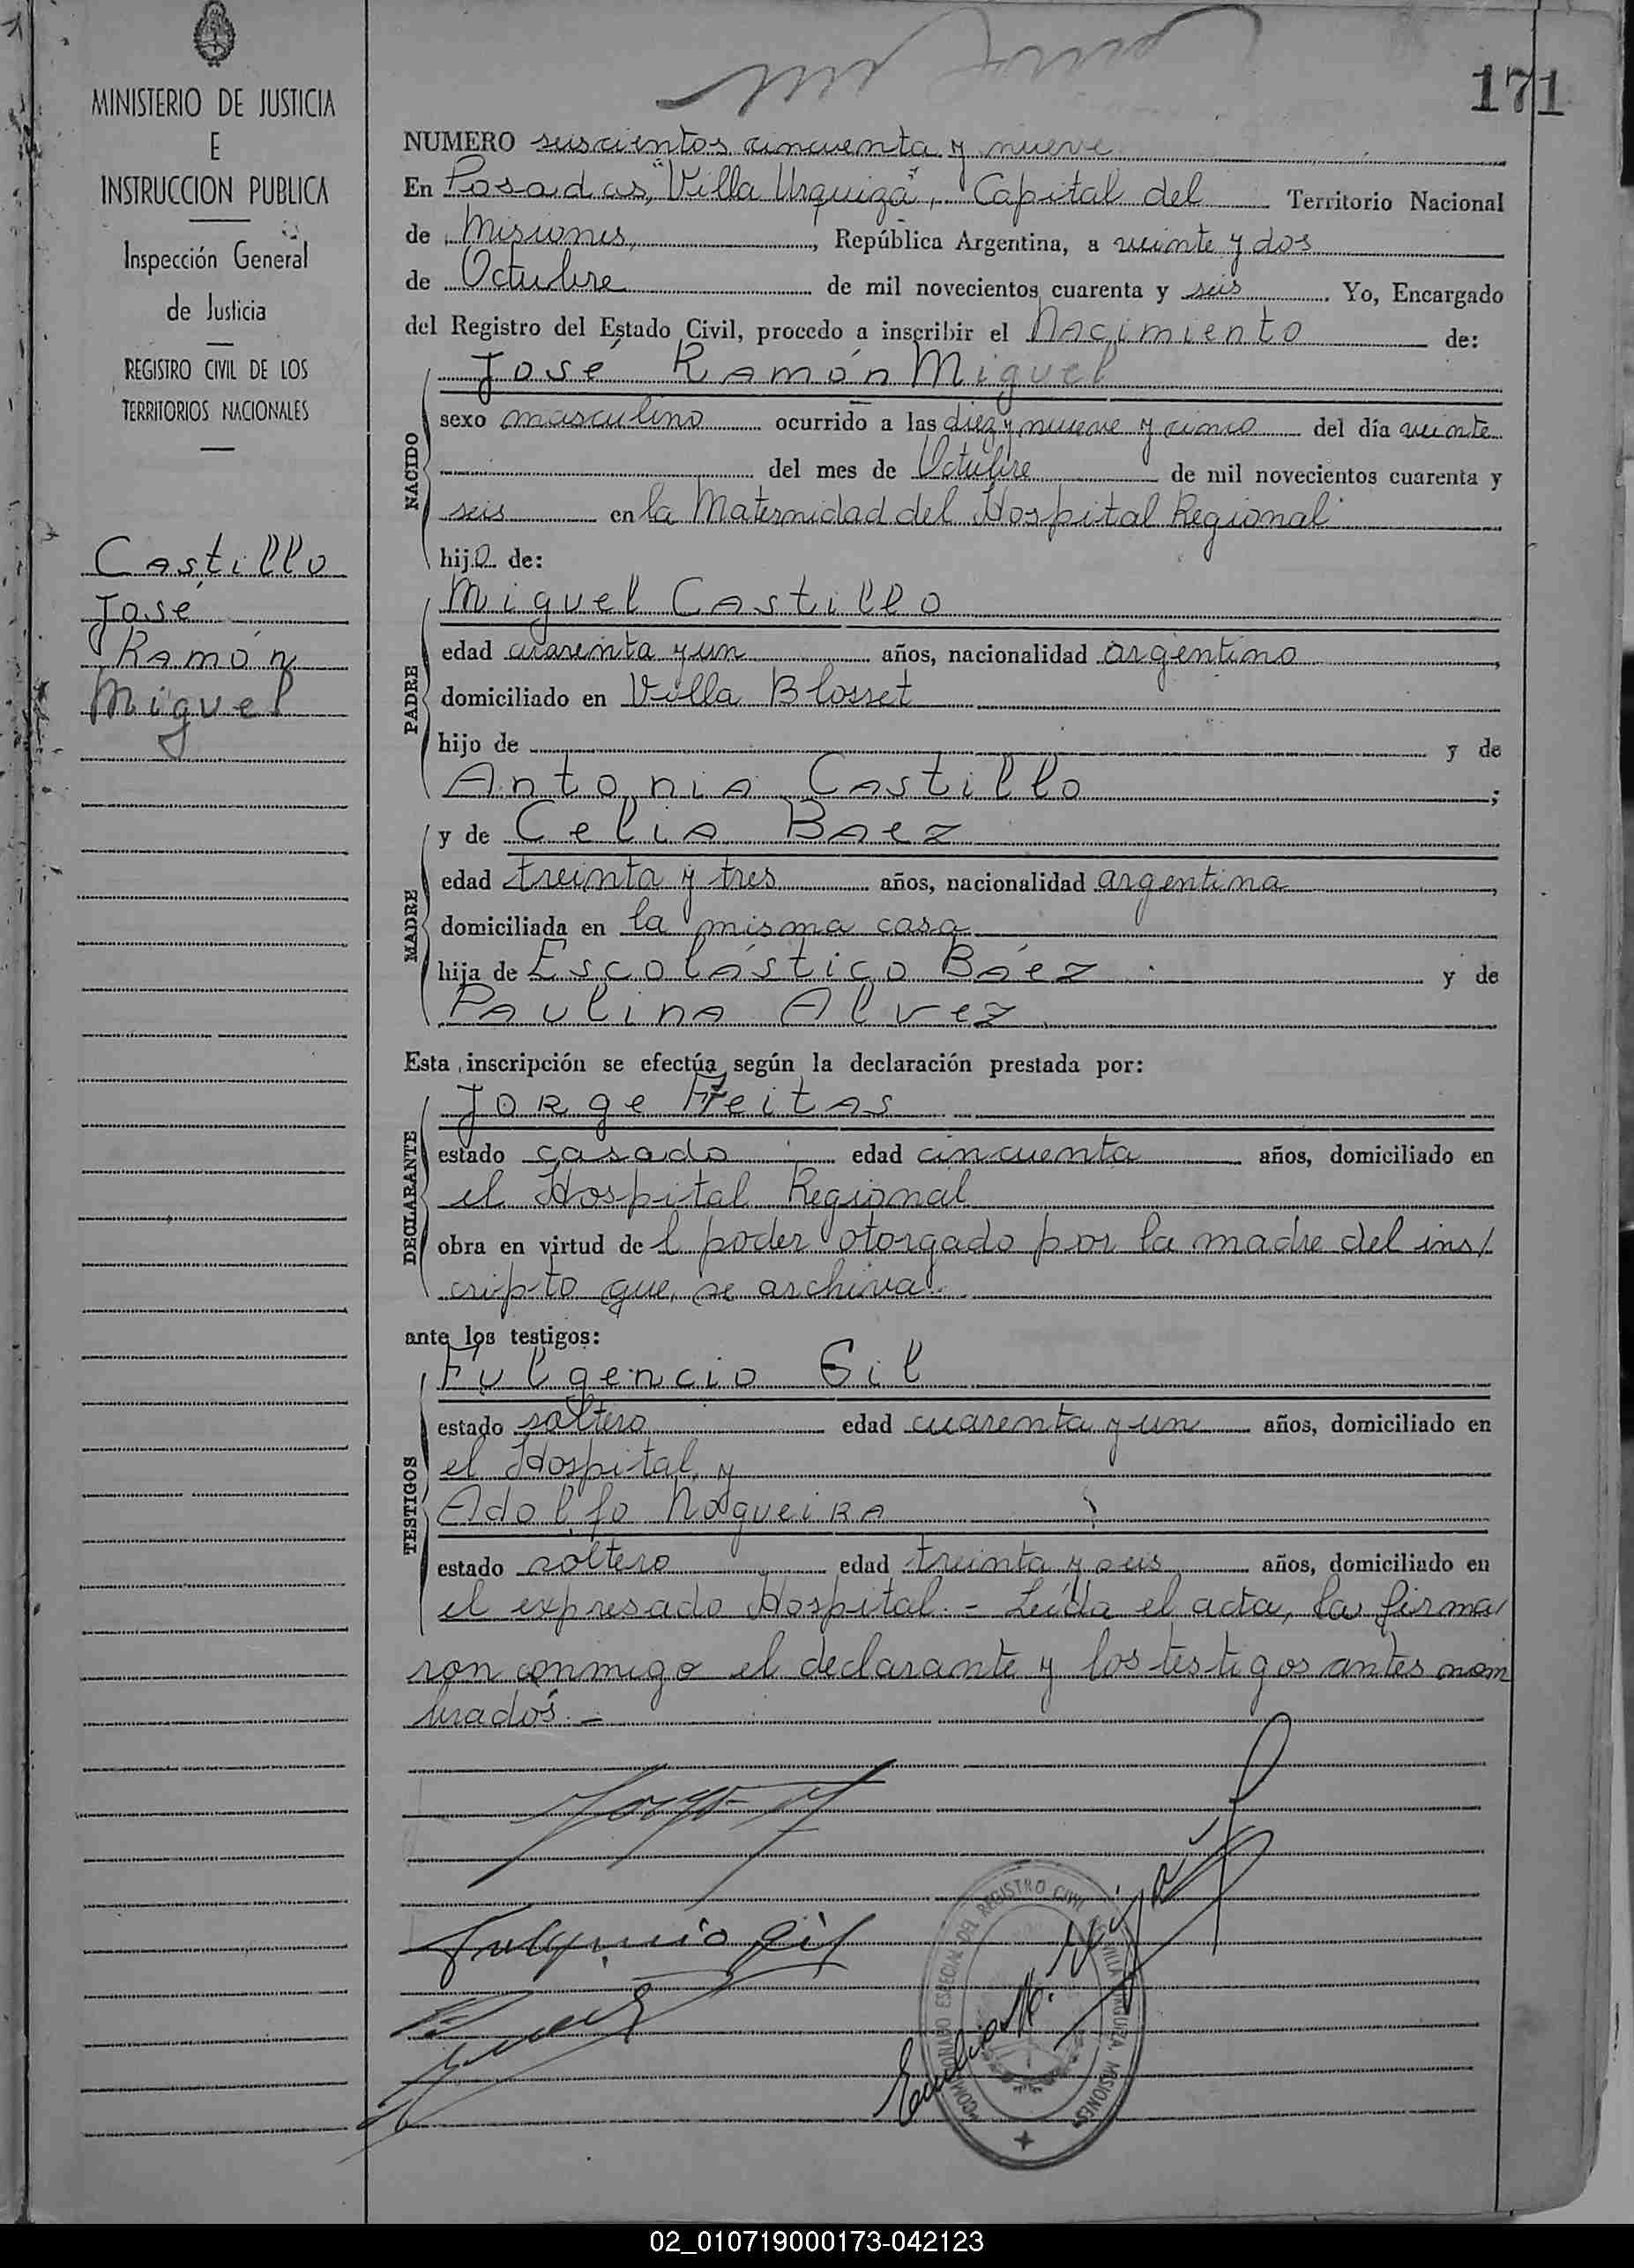 171
MINISTERIO DE JUSTICIA
E
INSTRUCCION PUBLICA
Inspección General
de Justicia
REGISTRO CIVIL DE LOS
TERRITORIOS NACIONALES
Castillo
José
Ramón
Miguel
NUMERO seiscientos cincuenta y nueve
En Posadas, "Villa Urquiza", Capital del Territorio Nacional
de Misiones, , República Argentina, a veinte y dos
de Octubre de mil novecientos cuarenta y seis . Yo, Encargado
del Registro del Estado Civil, procedo a inscribir el Nacimiento de:
José Ramón Miguel
NACIDO
sexo masculino ocurrido a las diez y nueve y cinco del día veinte
del mes de Octubre de mil novecientos cuarenta y
seis en la Maternidad del Hospital Regional
hijo de:
PADRE
Miguel Castillo
edad cuarenta y un años, nacionalidad argentino ,
domiciliado en Villa Blosset
hijo de y de
Antonia Castillo ;
MADRE
y de Celia Baez
edad treinta y tres años, nacionalidad argentina ,
domiciliada en la misma casa
hija de Escolástico Báez y de
Paulina Alvez
Esta inscripción se efectúa según la declaración prestada por:
DECLARANTE
Jorge Freitas
estado casado edad cincuenta años, domiciliado en
el Hospital Regional
obra en virtud del poder otorgado por la madre del ins/
cripto que se archiva.
ante los testigos:
TESTIGOS
Fulgencio Gil
estado soltero edad cuarenta y un años, domiciliado en
el Hospital, y
Adolfo Nogueira
estado soltero edad treinta y seis años, domiciliado en
el expresado Hospital. - Leída el acta, la firma/
ron conmigo el declarante y los testigos antes nom
brados. -
Fulgencio Gil
ESPECIAL DEL REGISTRO CIVIL VILLA URQUIZA MISIONES
02_010719000173-042123